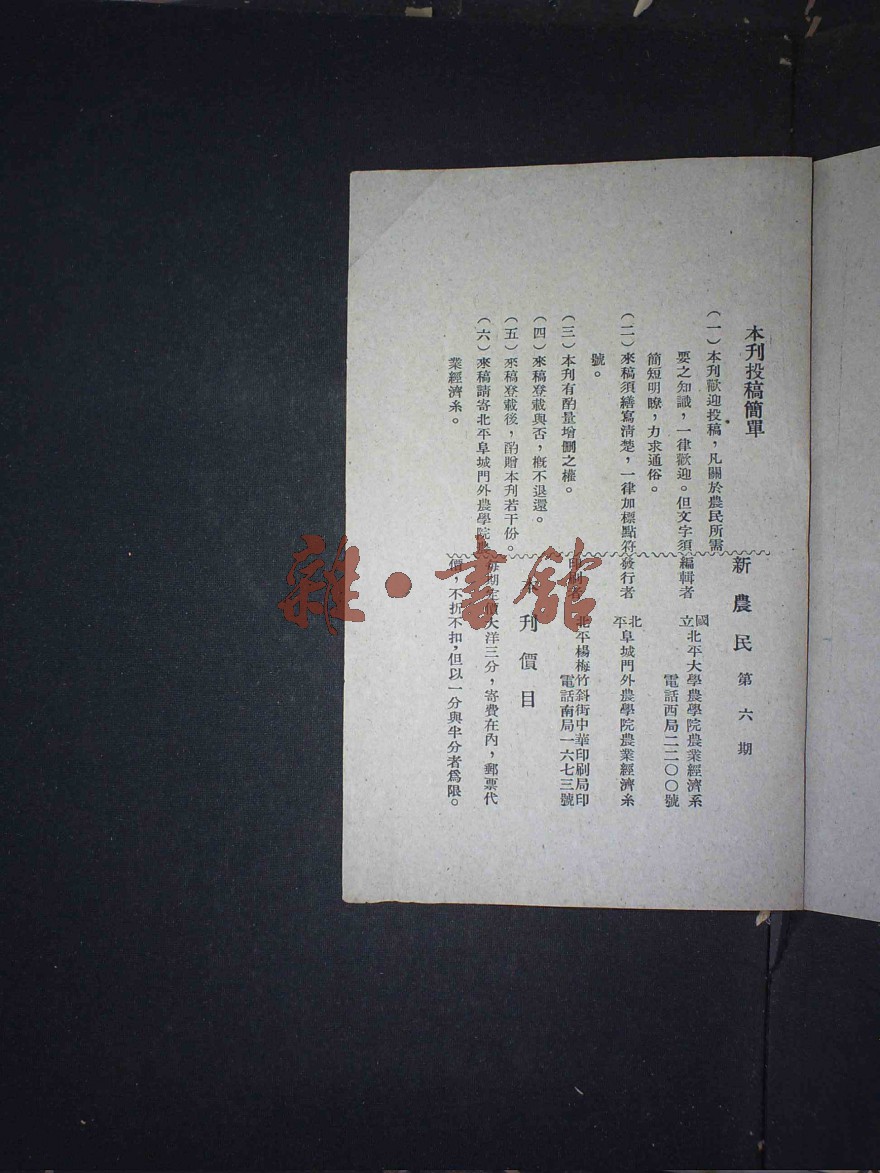 本刊投稿簡單
(一)本刊歡迎投稿,凡關於農民所需
要之知識,一律歡迎。但文字須
簡短明瞭,力求通俗。
(二)來稿須繕寫清楚,一律加標點符
號。
(三)本刊有酌量增删之權。
(四)來稿登載與否,概不退還。
(五)來稿登載後,酌贈本刊若干份。
(六)來稿請寄北平阜城門外農學院農
業經濟系。
新農民 第六期
編輯者 國立北平大學農學院農業經濟系
電話西局二二〇〇號
發行者 北平阜城門外農學院農業經濟系
印刷者 北平楊梅竹斜街中華印刷局印
電話南局一六七三號
本刊價目
每期定價大洋三分,寄費在內,郵票代
價,不折不扣,但以一分與半分者爲限。
雜·書館